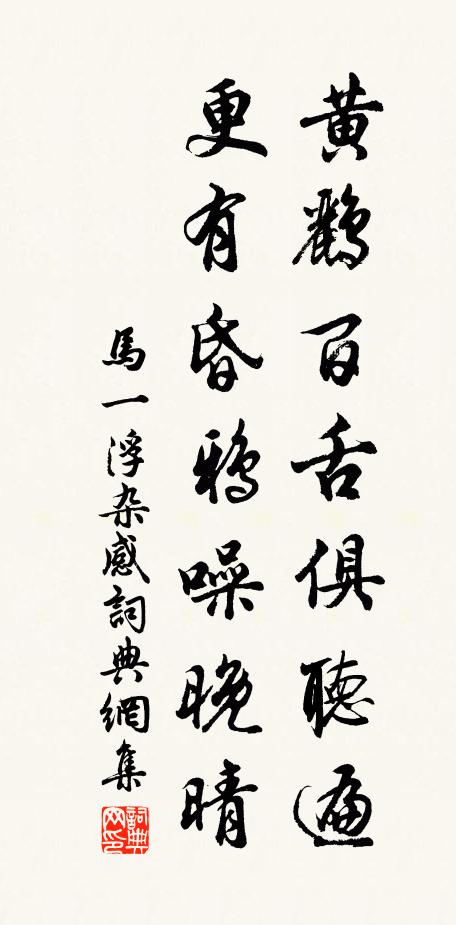 黃鸝百舌俱聽遍
更有昏鴉噪晚晴
馬一浮杂感詞典網集
詞典網印